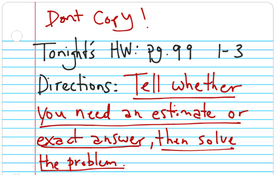 Don't Copy!
Tonight's HW: pg. 99 1-3
Directions: Tell whether
you need an estimate or
exact answer, then solve
the problem.